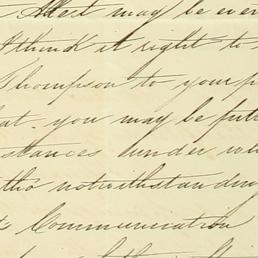 that may be even
I think it right to
Thompson to your
that you may be
stances under
tho notwithstanding
Communication